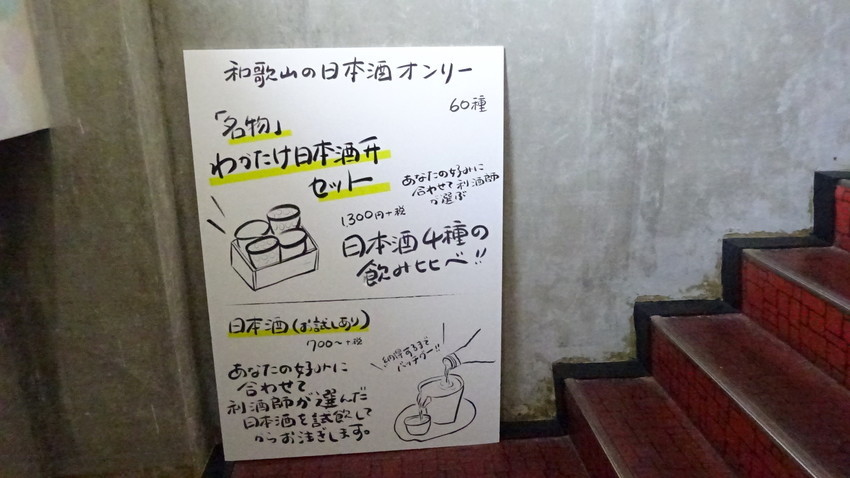 和歌山の日本酒オンリー
60種
「名物」
わかたけ日本酒升
セット
あなたの好みに
合わせて利酒師
が選ぶ
1,300円+税
日本酒4種の
飲み比べ!!
日本酒(お試しあり)
700〜+税
納得するまで
バッチコー!!
あなたの好みに
合わせて
利酒師が選んだ
日本酒を試飲して
からお注ぎします。